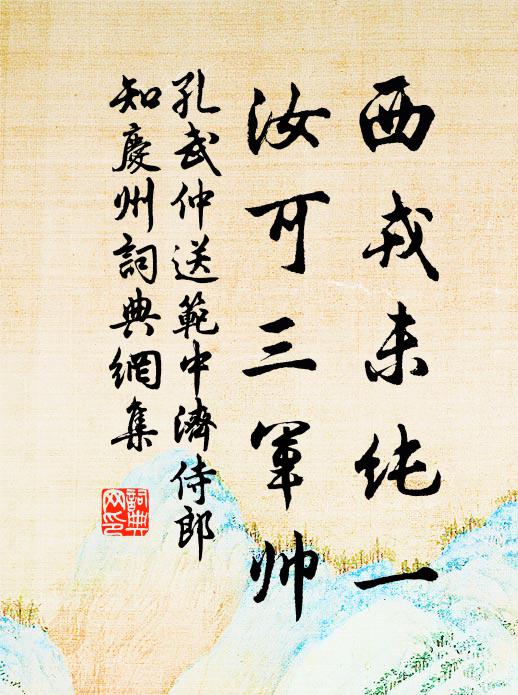 西戎未纯一
汝可三军帅
孔武仲送範中濟侍郎
知慶州詞典網集
詞典
网印